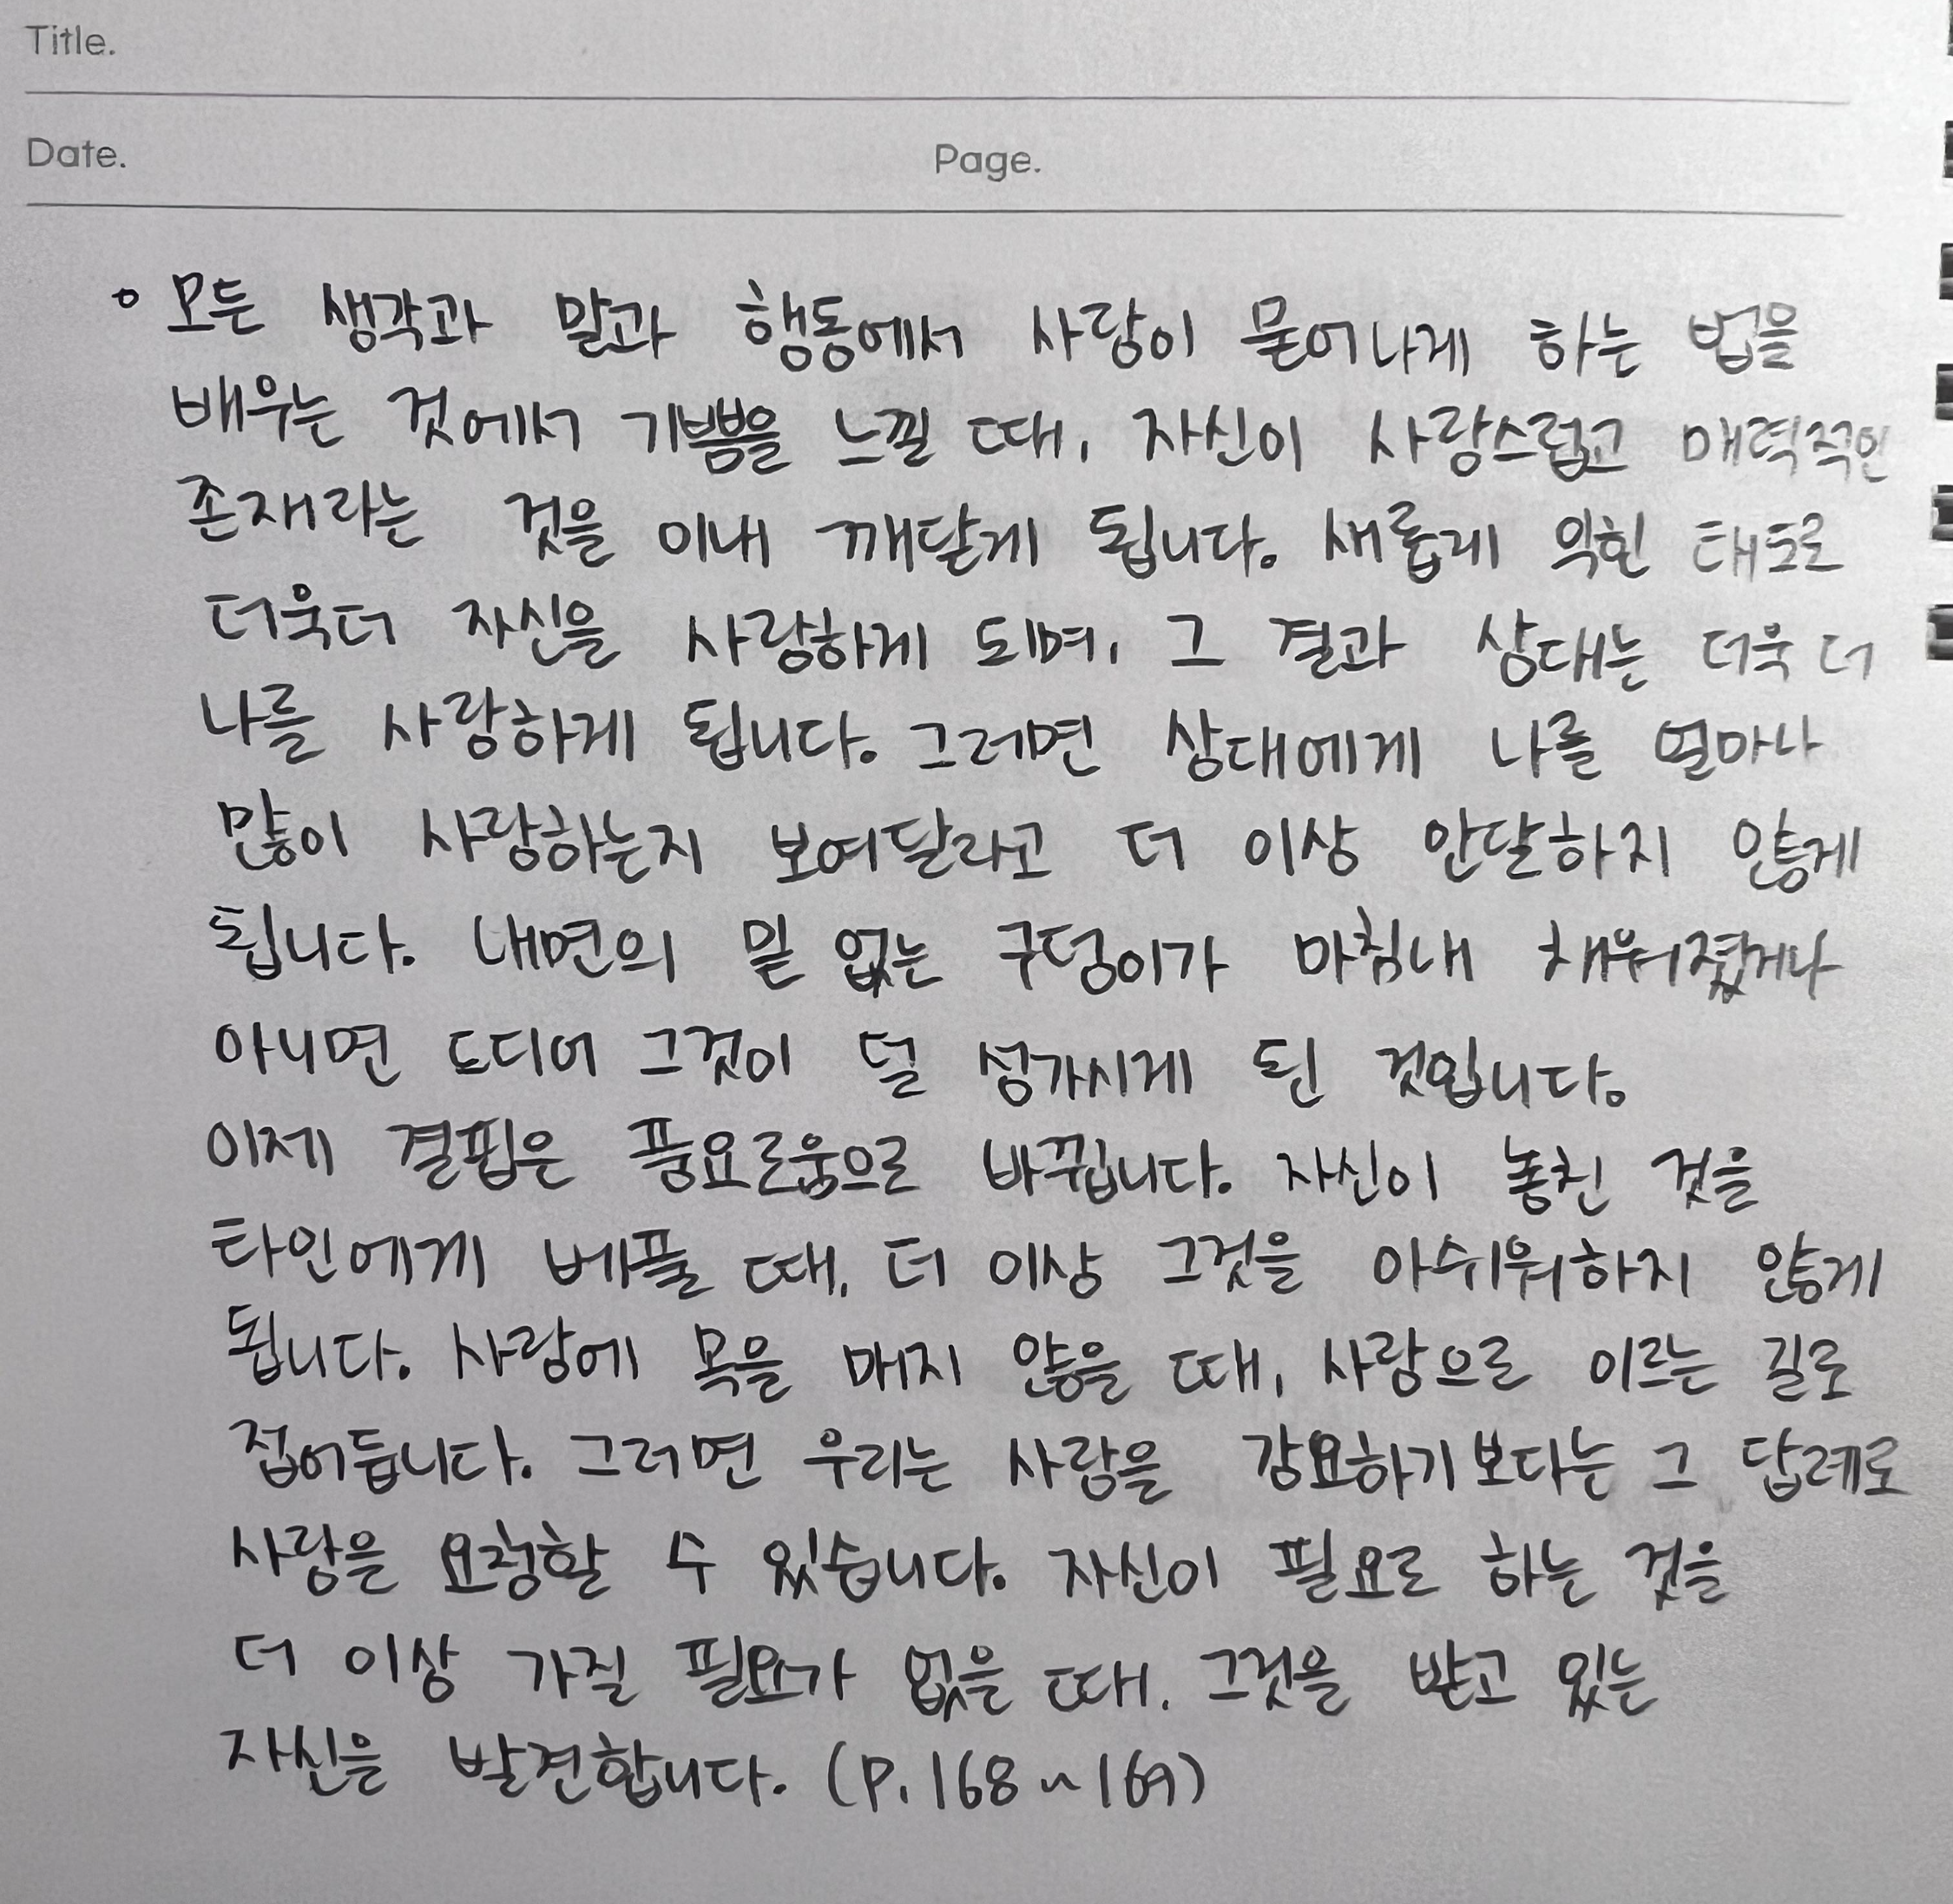 Title.
Date. Page.
◦ 모든 생각과 말과 행동에서 사랑이 묻어나게 하는 법을
배우는 것에서 기쁨을 느낄 때, 자신이 사랑스럽고 매력적인
존재라는 것을 이내 깨닫게 됩니다. 새롭게 익힌 태도로
더욱더 자신을 사랑하게 되며, 그 결과 상대는 더욱 더
나를 사랑하게 됩니다. 그러면 상대에게 나를 얼마나
많이 사랑하는지 보여달라고 더 이상 안달하지 않게
됩니다. 내면의 밑 없는 구덩이가 마침내 채워졌거나
아니면 드디어 그것이 덜 성가시게 된 것입니다.
이제 결핍은 풍요로움으로 바뀝니다. 자신이 놓친 것을
타인에게 베풀 때, 더 이상 그것을 아쉬워하지 않게
됩니다. 사랑에 목을 매지 않을 때, 사랑으로 이르는 길로
접어듭니다. 그러면 우리는 사랑을 강요하기보다는 그 답례로
사랑을 요청할 수 있습니다. 자신이 필요로 하는 것을
더 이상 가질 필요가 없을 때, 그것을 받고 있는
자신을 발견합니다. (P. 168~169)